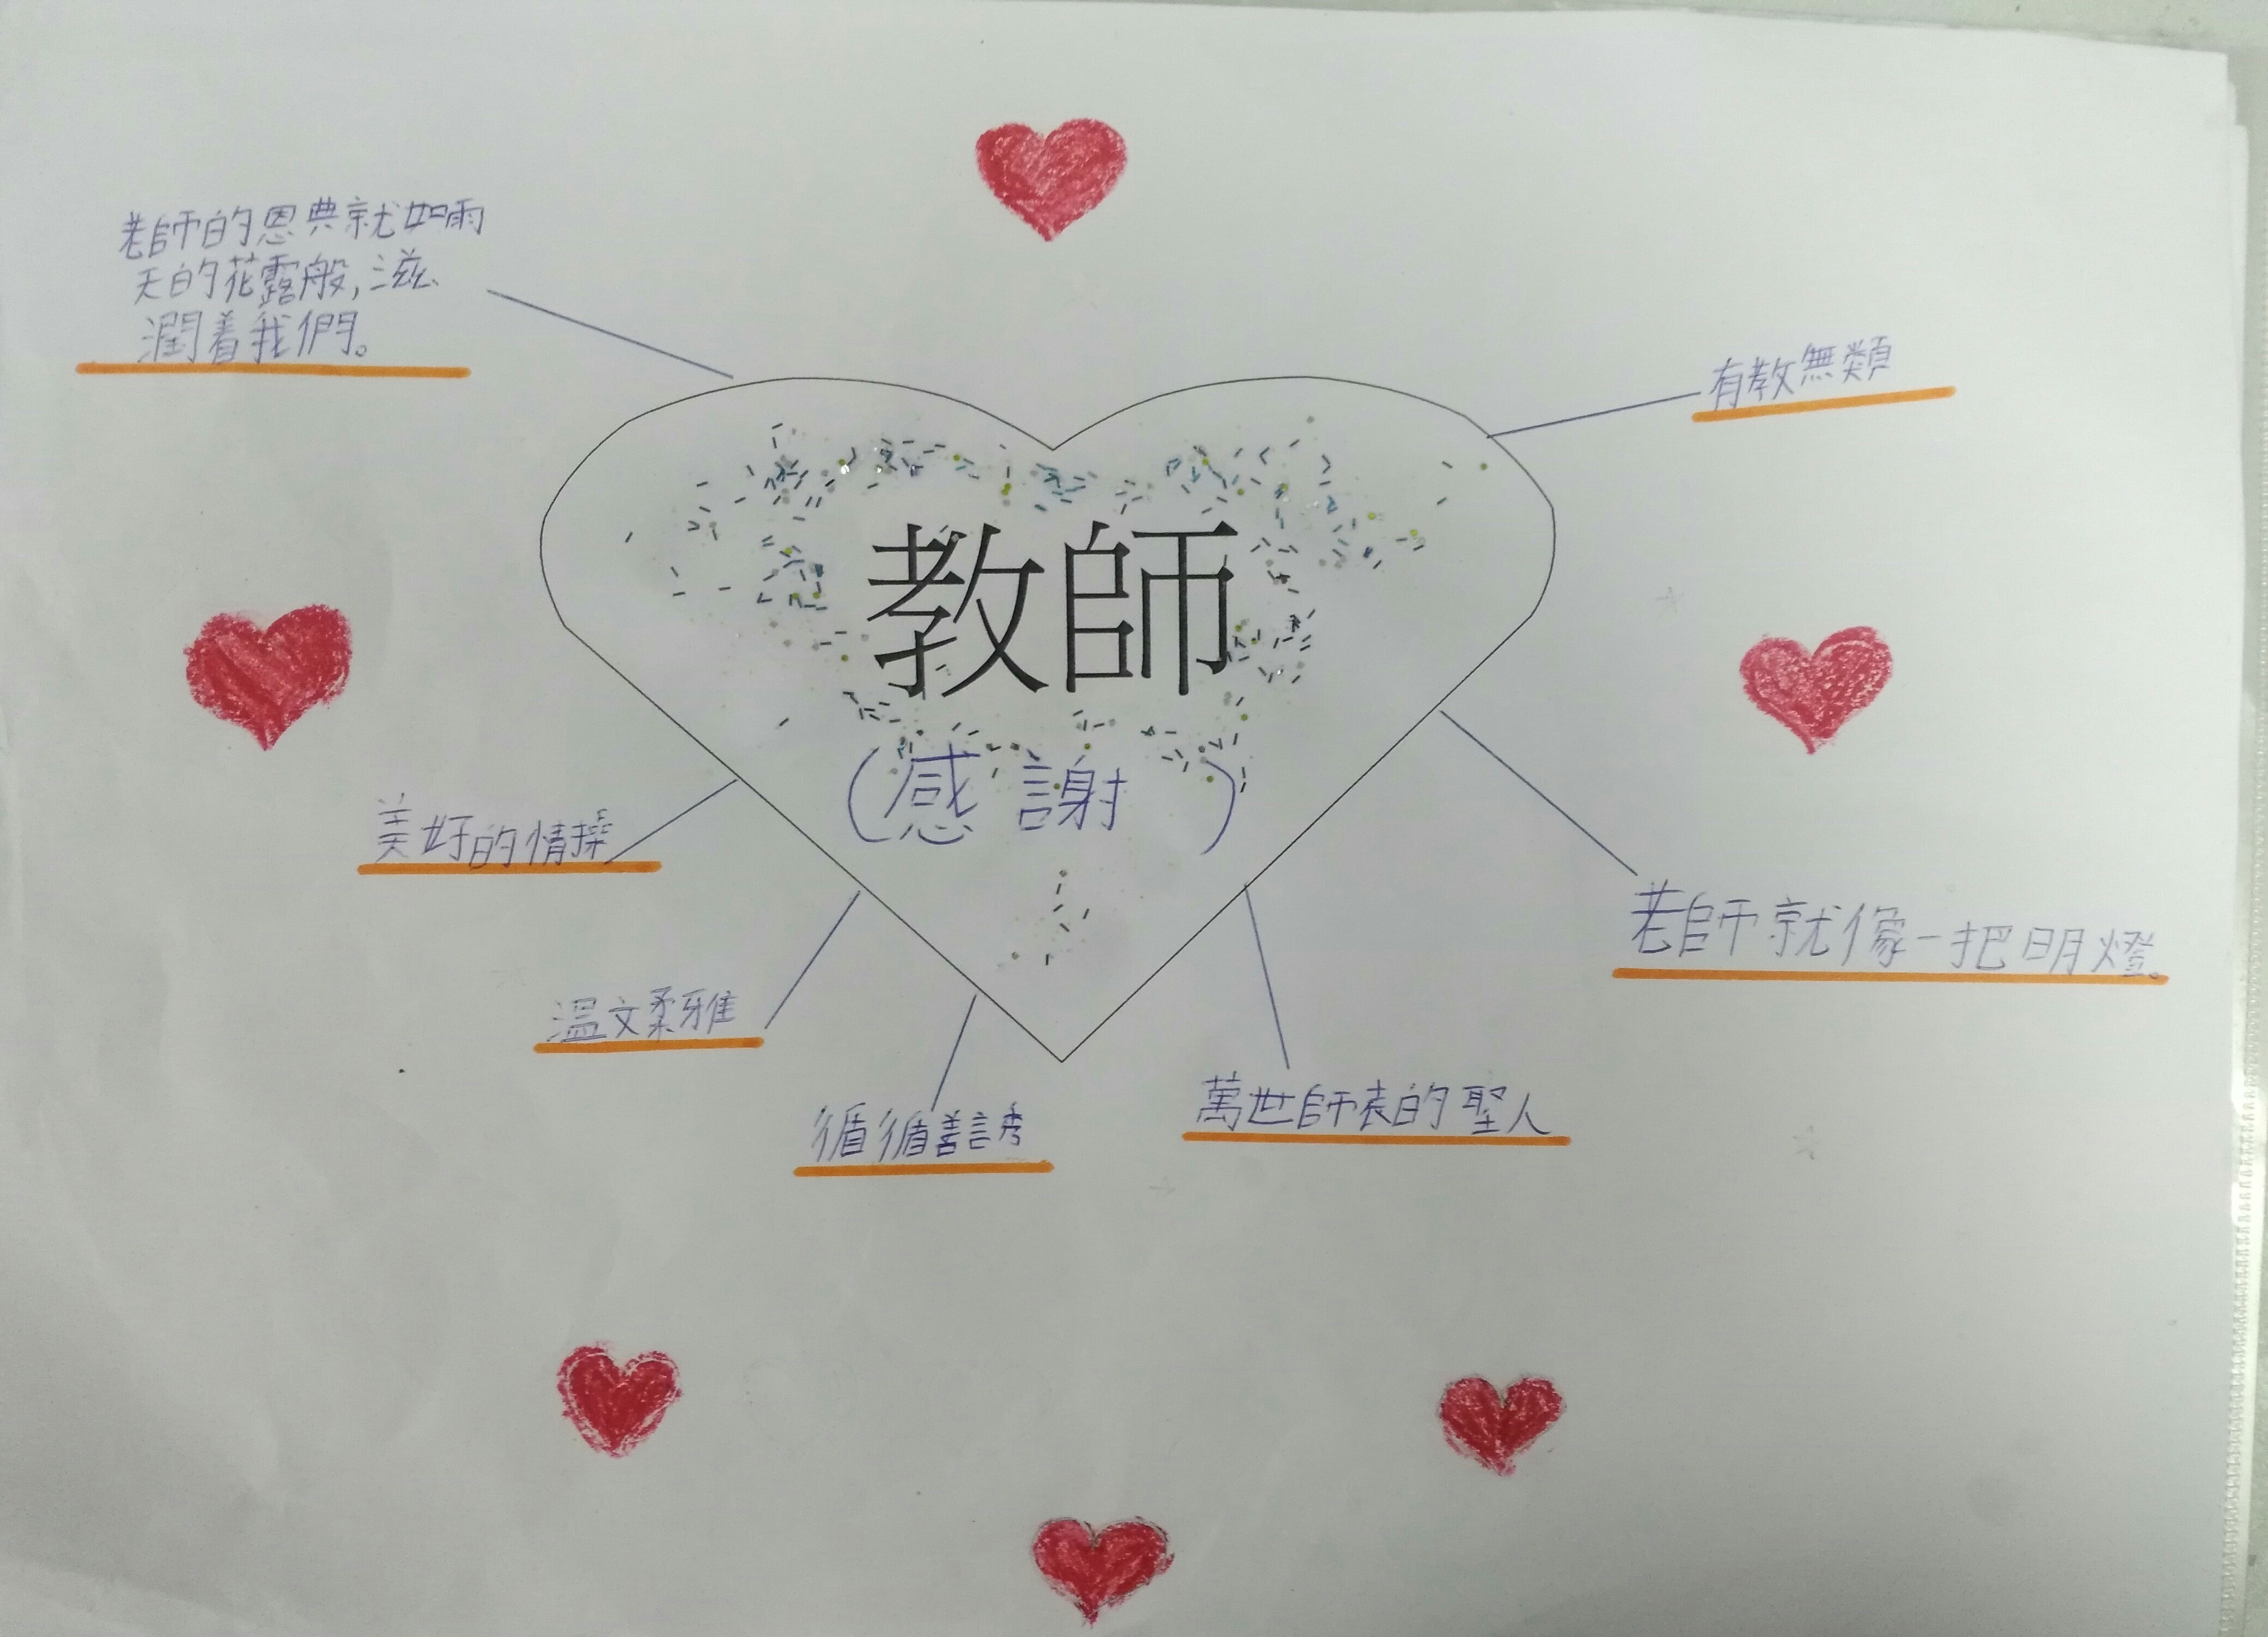 老師的恩典就如雨
天的花露般,滋
潤着我們。
有教無類
教師
(感謝)
美好的情操
老師就像一把明燈。
溫文柔雅
循循善誘
萬世師表的聖人